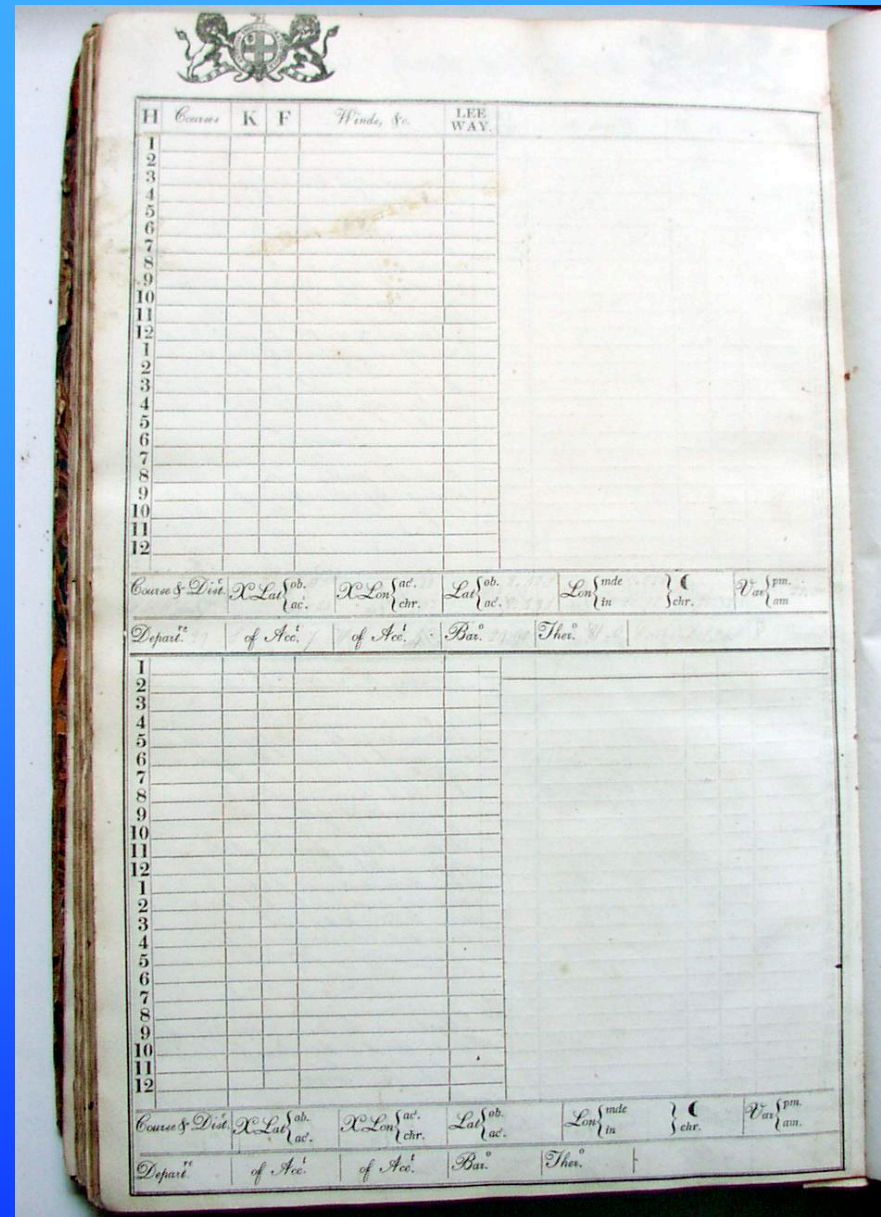 H Courses K F Winds, &c. LEE WAY.
1
2
3
4
5
6
7
8
9
10
11
12
1
2
3
4
5
6
7
8
9
10
11
12
Course & Dist. X Lat { ob. ac. X Lon { ac. chr. Lat { ob. ac. Lon { mde in } ☾ chr. Var { pm. am
Depart.re of Acc.t of Acc.t Bar.o Ther.o
1
2
3
4
5
6
7
8
9
10
11
12
1
2
3
4
5
6
7
8
9
10
11
12
Course & Dist. X Lat { ob. ac. X Lon { ac. chr. Lat { ob. ac. Lon { mde in } ☾ chr. Var { pm. am.
Depart.re of Acc.t of Acc.t Bar.o Ther.o